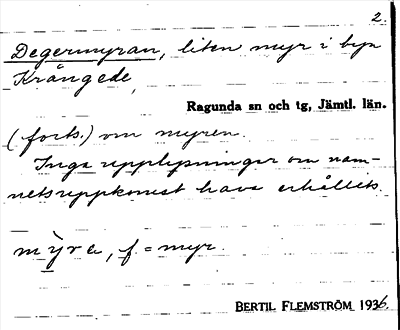 2.
Degermyran, liten myr i byn
Krångede
Ragunda sn och tg, Jämtl. län.
(forts.) om myren.
Inga upplysningar om nam-
nets uppkomst hava erhållits.
mỳra, f = myr.
BERTIL FLEMSTRÖM 1936.